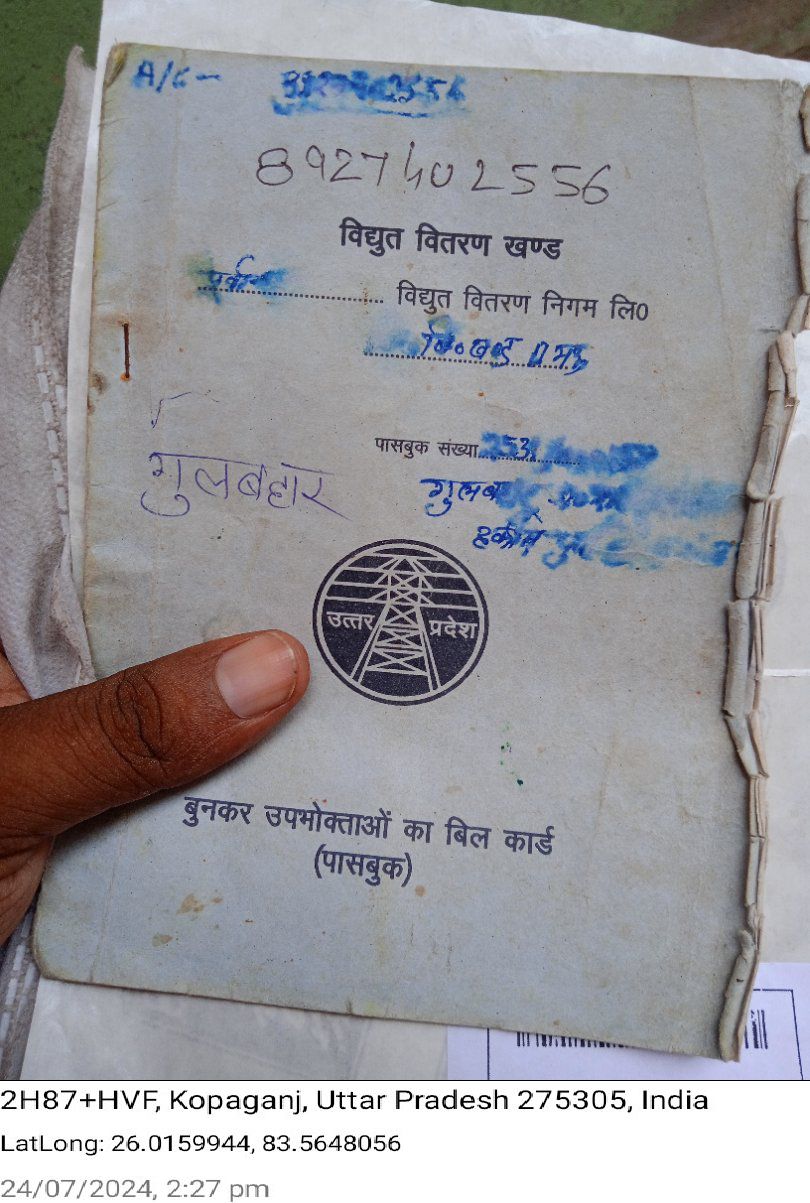 A/C-
8927402556
विद्युत वितरण खण्ड
विद्युत वितरण निगम लि०
पासबुक संख्या
गुलबहार
उत्तर प्रदेश
बुनकर उपभोक्ताओं का बिल कार्ड
(पासबुक)
2H87+HVF, Kopaganj, Uttar Pradesh 275305, India
LatLong: 26.0159944, 83.5648056
24/07/2024, 2:27 pm